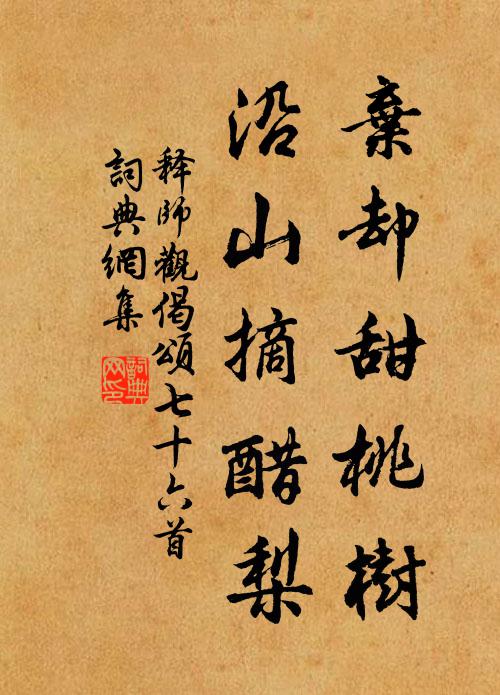 棄却甜桃樹
沿山摘醋梨
释師觀偈頌七十六首
詞典網集
詞典网印